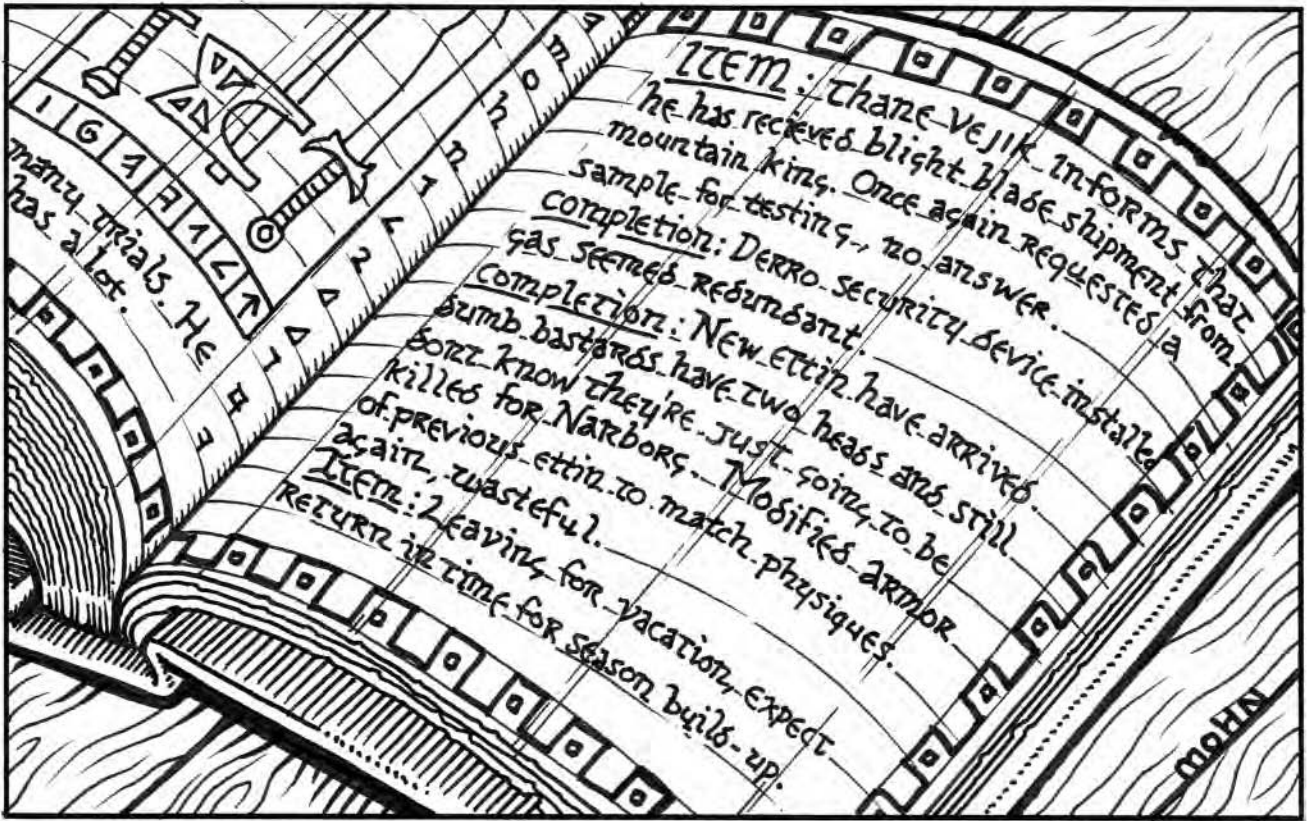 many trials. He
has a lot.
ITEM: Thane Vejik informs that
he has recieved blight blade shipment from
mountain king. Once again requested a
sample for testing, no answer.
completion: Derro security device installed
gas seemed redundant.
completion: New ettin have arrived.
Dumb bastards have two heads and still
dont know they're just going to be
killed for Narborg. Modified armor
of previous ettin to match physiques.
again, wasteful.
Item: Leaving for vacation, expect
return in time for season build-up.